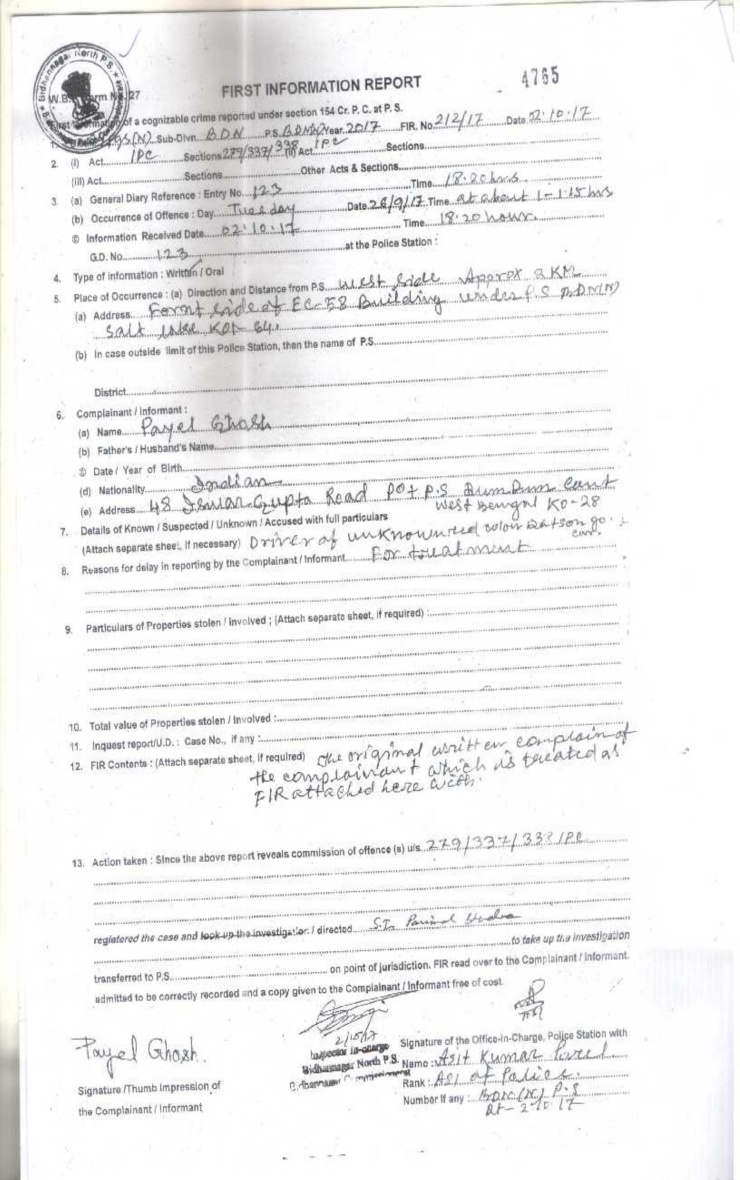 Bidhannagar North P.S.
W.B. Form No. 27
FIRST INFORMATION REPORT
4765
First Information of a cognizable crime reported under section 154 Cr. P. C. at P. S.
1. Sub-Divn. BDN P.S. BDN(N) Year 2017 FIR. No. 212/17 Date 02.10.17
2. (i) Act IPC Sections 279/337/338 (ii) Act IPC Sections
(iii) Act Sections Other Acts & Sections
3 (a) General Diary Reference : Entry No. 123 Time 18.20 hrs
(b) Occurrence of Offence : Day Tuesday Date 26/9/17 Time at about 1-1.15 hrs
© Information Received Date 02.10.17 Time 18.20 hour.
G.D. No. 123 at the Police Station :
4. Type of information : Written / Oral
5. Place of Occurrence : (a) Direction and Distance from P.S. West Side Approx 2 KM
(a) Address Fornt side of EC-58 Building under P.S BDN(N)
Salt Lake Kol-64.
(b) In case outside limit of this Police Station, then the name of P.S.
District
6. Complainant / Informant :
(a) Name Payel Ghosh
(b) Father's / Husband's Name
© Date / Year of Birth
(d) Nationality Indian
(e) Address 48 Iswar Gupta Road PO+P.S Dum Dum Cant
West Bengal KO-28
7. Details of Known / Suspected / Unknown / Accused with full particulars
(Attach separate sheet, if necessary) Driver of unknown red colour Datson go car.
8. Reasons for delay in reporting by the Complainant / Informant For treatment
9. Particulars of Properties stolen / involved ; (Attach separate sheet, if required) :
10. Total value of Properties stolen / Involved :
11. Inquest report/U.D. : Case No., if any :
12. FIR Contents : (Attach separate sheet, if required) The original written complain of
the complainant which is treated as
FIR attached here with.
13. Action taken : Since the above report reveals commission of offence (s) u/s 279/337/338 IPC
registered the case and took up the investigation / directed S.I.
to take up the investigation
transferred to P.S. on point of jurisdiction. FIR read over to the Complainant / Informant.
admitted to be correctly recorded and a copy given to the Complainant / Informant free of cost.
2/10/17
Inspector in-charge
Bidhannagar North P.S.
Bidhannagar Commissionerate
Payel Ghosh.
Signature /Thumb Impression of
the Complainant / Informant
Signature of the Office-in-Charge, Police Station with
Name : Asit Kumar
Rank : ASI of Police.
Number if any : BDN(N) P.S
Dt- 2.10.17